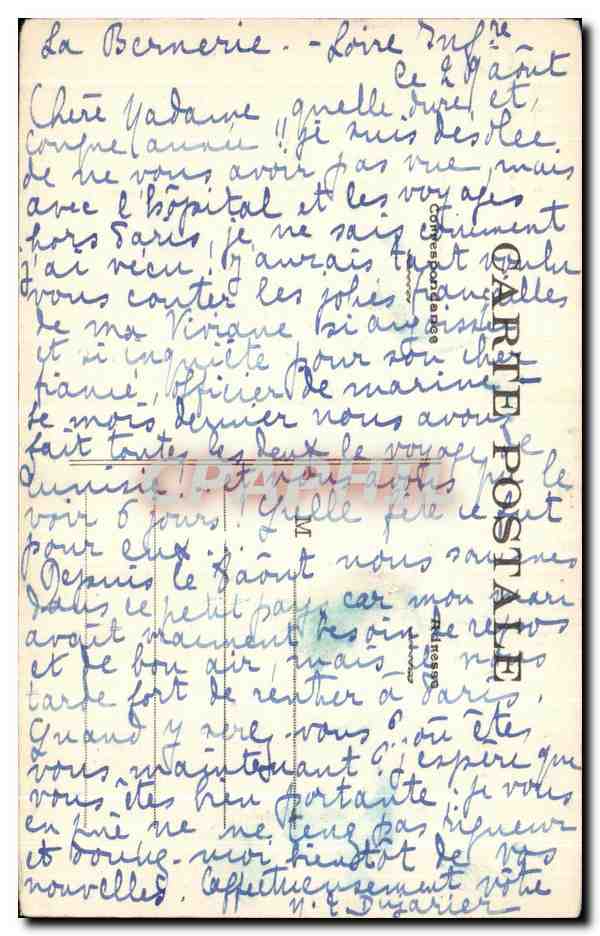 La Bernerie. - Loire Infre
Ce 29 août
Chère Madame, quelle dure et,
longue année!! je suis désolée
de ne vous avoir pas vue, mais
avec l'hôpital et les voyages
hors Paris, je ne sais comment
j'ai vécu! j'aurais tant voulu
vous conter les jolies fiançailles
de ma Viviane si angoissée
et si inquiète pour son cher
fiancé, officier de marine -
le mois dernier nous avons
fait toutes les deux le voyage de
Tunisie! et nous avons pu le
voir 6 jours! Quelle fête ce fut
pour eux...
Depuis le 8 août nous sommes
dans ce petit pays car mon mari
avait vraiment besoin de repos
et de bon air, mais il nous
tarde fort de rentrer à Paris.
Quand y serez-vous? où êtes
vous maintenant? j'espère que
vous êtes bien portante: je vous
en prie ne me tenez pas rigueur
et donnez-moi bientôt de vos
nouvelles. Affectueusement vôtre
Dujarier
CARTE POSTALE
Correspondance
Adresse
M
CPAPHIL